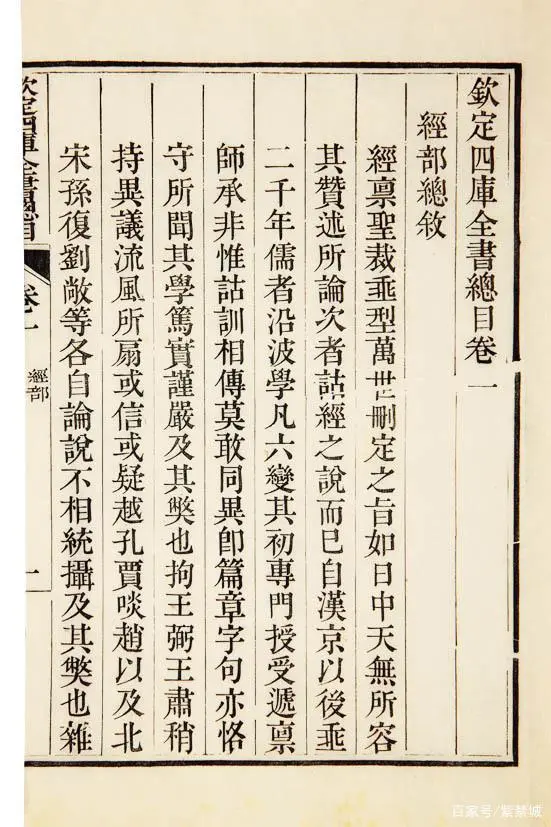 欽定四庫全書總目卷一
經部總敘
經禀聖裁垂型萬世删定之旨如日中天無所容
其贊述所論次者詁經之說而已自漢京以後垂
二千年儒者沿波學凡六變其初專門授受遞禀
師承非惟詁訓相傳莫敢同異卽篇章字句亦恪
守所聞其學篤實謹嚴及其弊也拘王弼王肅稍
持異議流風所扇或信或疑越孔賈啖趙以及北
宋孫復劉敞等各自論說不相統攝及其弊也雜
欽定四庫全書總目
卷一
經部
一
百家号/紫禁城